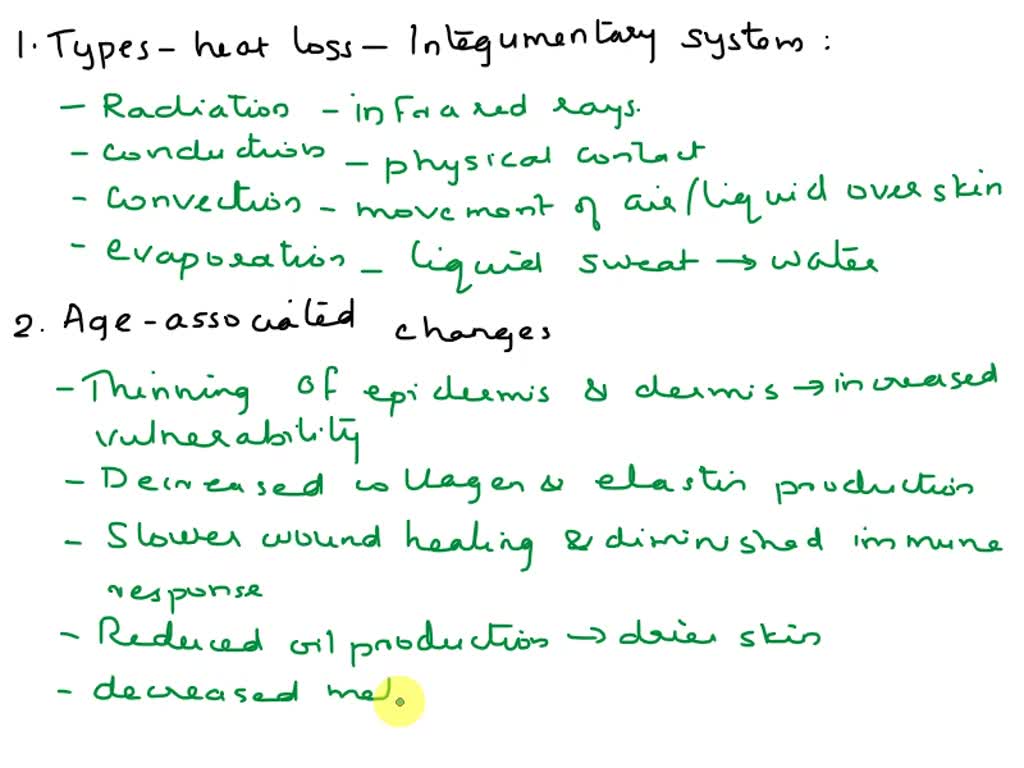 1. Types - heat loss - Integumentary system :
- Radiation - infrared rays.
- conduction - physical contact
- convection - movement of air/liquid over skin
- evaporation - liquid sweat → water
2. Age-associated changes
- Thinning of epidermis & dermis → increased
vulnerability
- Decreased collagen & elastin production
- Slower wound healing & diminished immune
response
- Reduced oil production → drier skin
- decreased mel